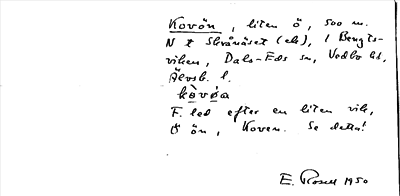 Kovön, liten ö, 500 m.
N t Skrånäset (ek), i Bengts-
viken, Dals-Eds sn, Vedbo hd,
Älvsb. l.
F. led efter en liten vik,
Ö ön, Koven. Se detta!
E. Rosell 1950